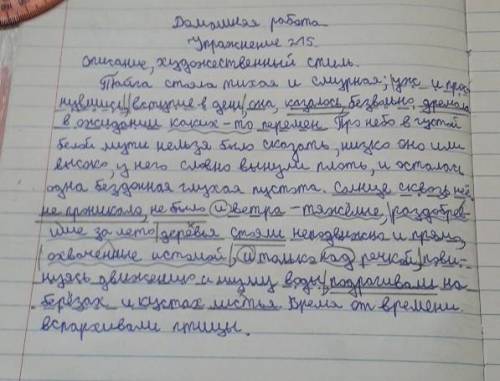 Домашняя работа
Упражнение 215.
Описание, художественный стиль.
Тайга стала тихая и смурная; уж и прос-
нувшись, вступив в день, она, казалось, безвольно дремала
в ожидании каких-то перемен. Про небо в густой
белой мути нельзя было сказать, низко оно или
высоко, у него словно вынули плоть, и осталась
одна бездонная глухая пустота. Солнце сквозь неё
не проникало, не было и ветра - тяжёлые, раздобрев-
шие за лето деревья стояли неподвижно и прямо,
охваченные истомой, и только над речкой, пови-
нуясь движению и шуму воды, подрагивали на
берёзах и кустах листья. Время от времени
вспархивали птицы.